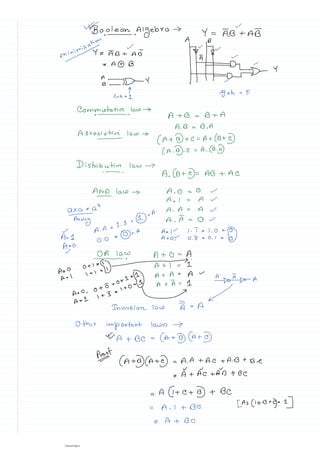 Boolean Algebra →
minimization
Y = A̅B + AB̅
Y = A̅B + AB̅
= A ⊕ B
A B
A
B
Y
Y
Gate = 1
gate = 5
Commutative law →
A + B = B + A
A.B = B.A
Associative law →
(A + B) + C = A + (B + C)
(A.B).C = A.(B.C)
Distributive law →
A.(B + C) = AB + AC
AND law →
A.0 = 0
A.1 = A
A.A = A
A.A̅ = 0
a x a = a²
A.A = 1.1 = 1 = A
0.0 = 0 = A
A=1
A=0
A=1 1.1̅ = 1.0 = 0
A=0 0.0̅ = 0.1 = 0
OR law
A + 0 = A
A + 1 = 1
A + A = A
A + A̅ = 1
A=0 0+1 = 1
A=1 1+1 = 1
A=0, 0+0̅ = 0+1 = 1
A=1 1+1̅ = 1+0 = 1
A A̅ A
Inversion law A̿ = A
Other important laws →
A + BC = (A + B)(A + C)
Proof
(A + B)(A + C) = A.A + AC + A.B + B.C
= A + AC + AB + BC
= A (1 + C + B) + BC
= A.1 + BC [As (1+B+C) = 1]
= A + BC